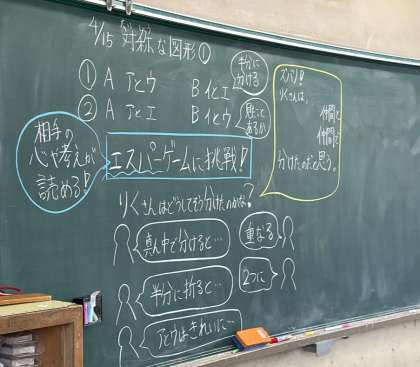 4/15 対称な図形①
① A アとウ B イとエ
② A アとエ B イとウ
半分に
分ける
相手の
心や考えが
読める!
エスパーゲームに挑戦!
ズバリ!
りくさんは、
仲間と
仲間で
分けたのだと思う。
りくさんはどうしてそう分けたのかな?
真ん中で分けると…
重なる
半分に折ると…
2つに
アとウはきれいに…